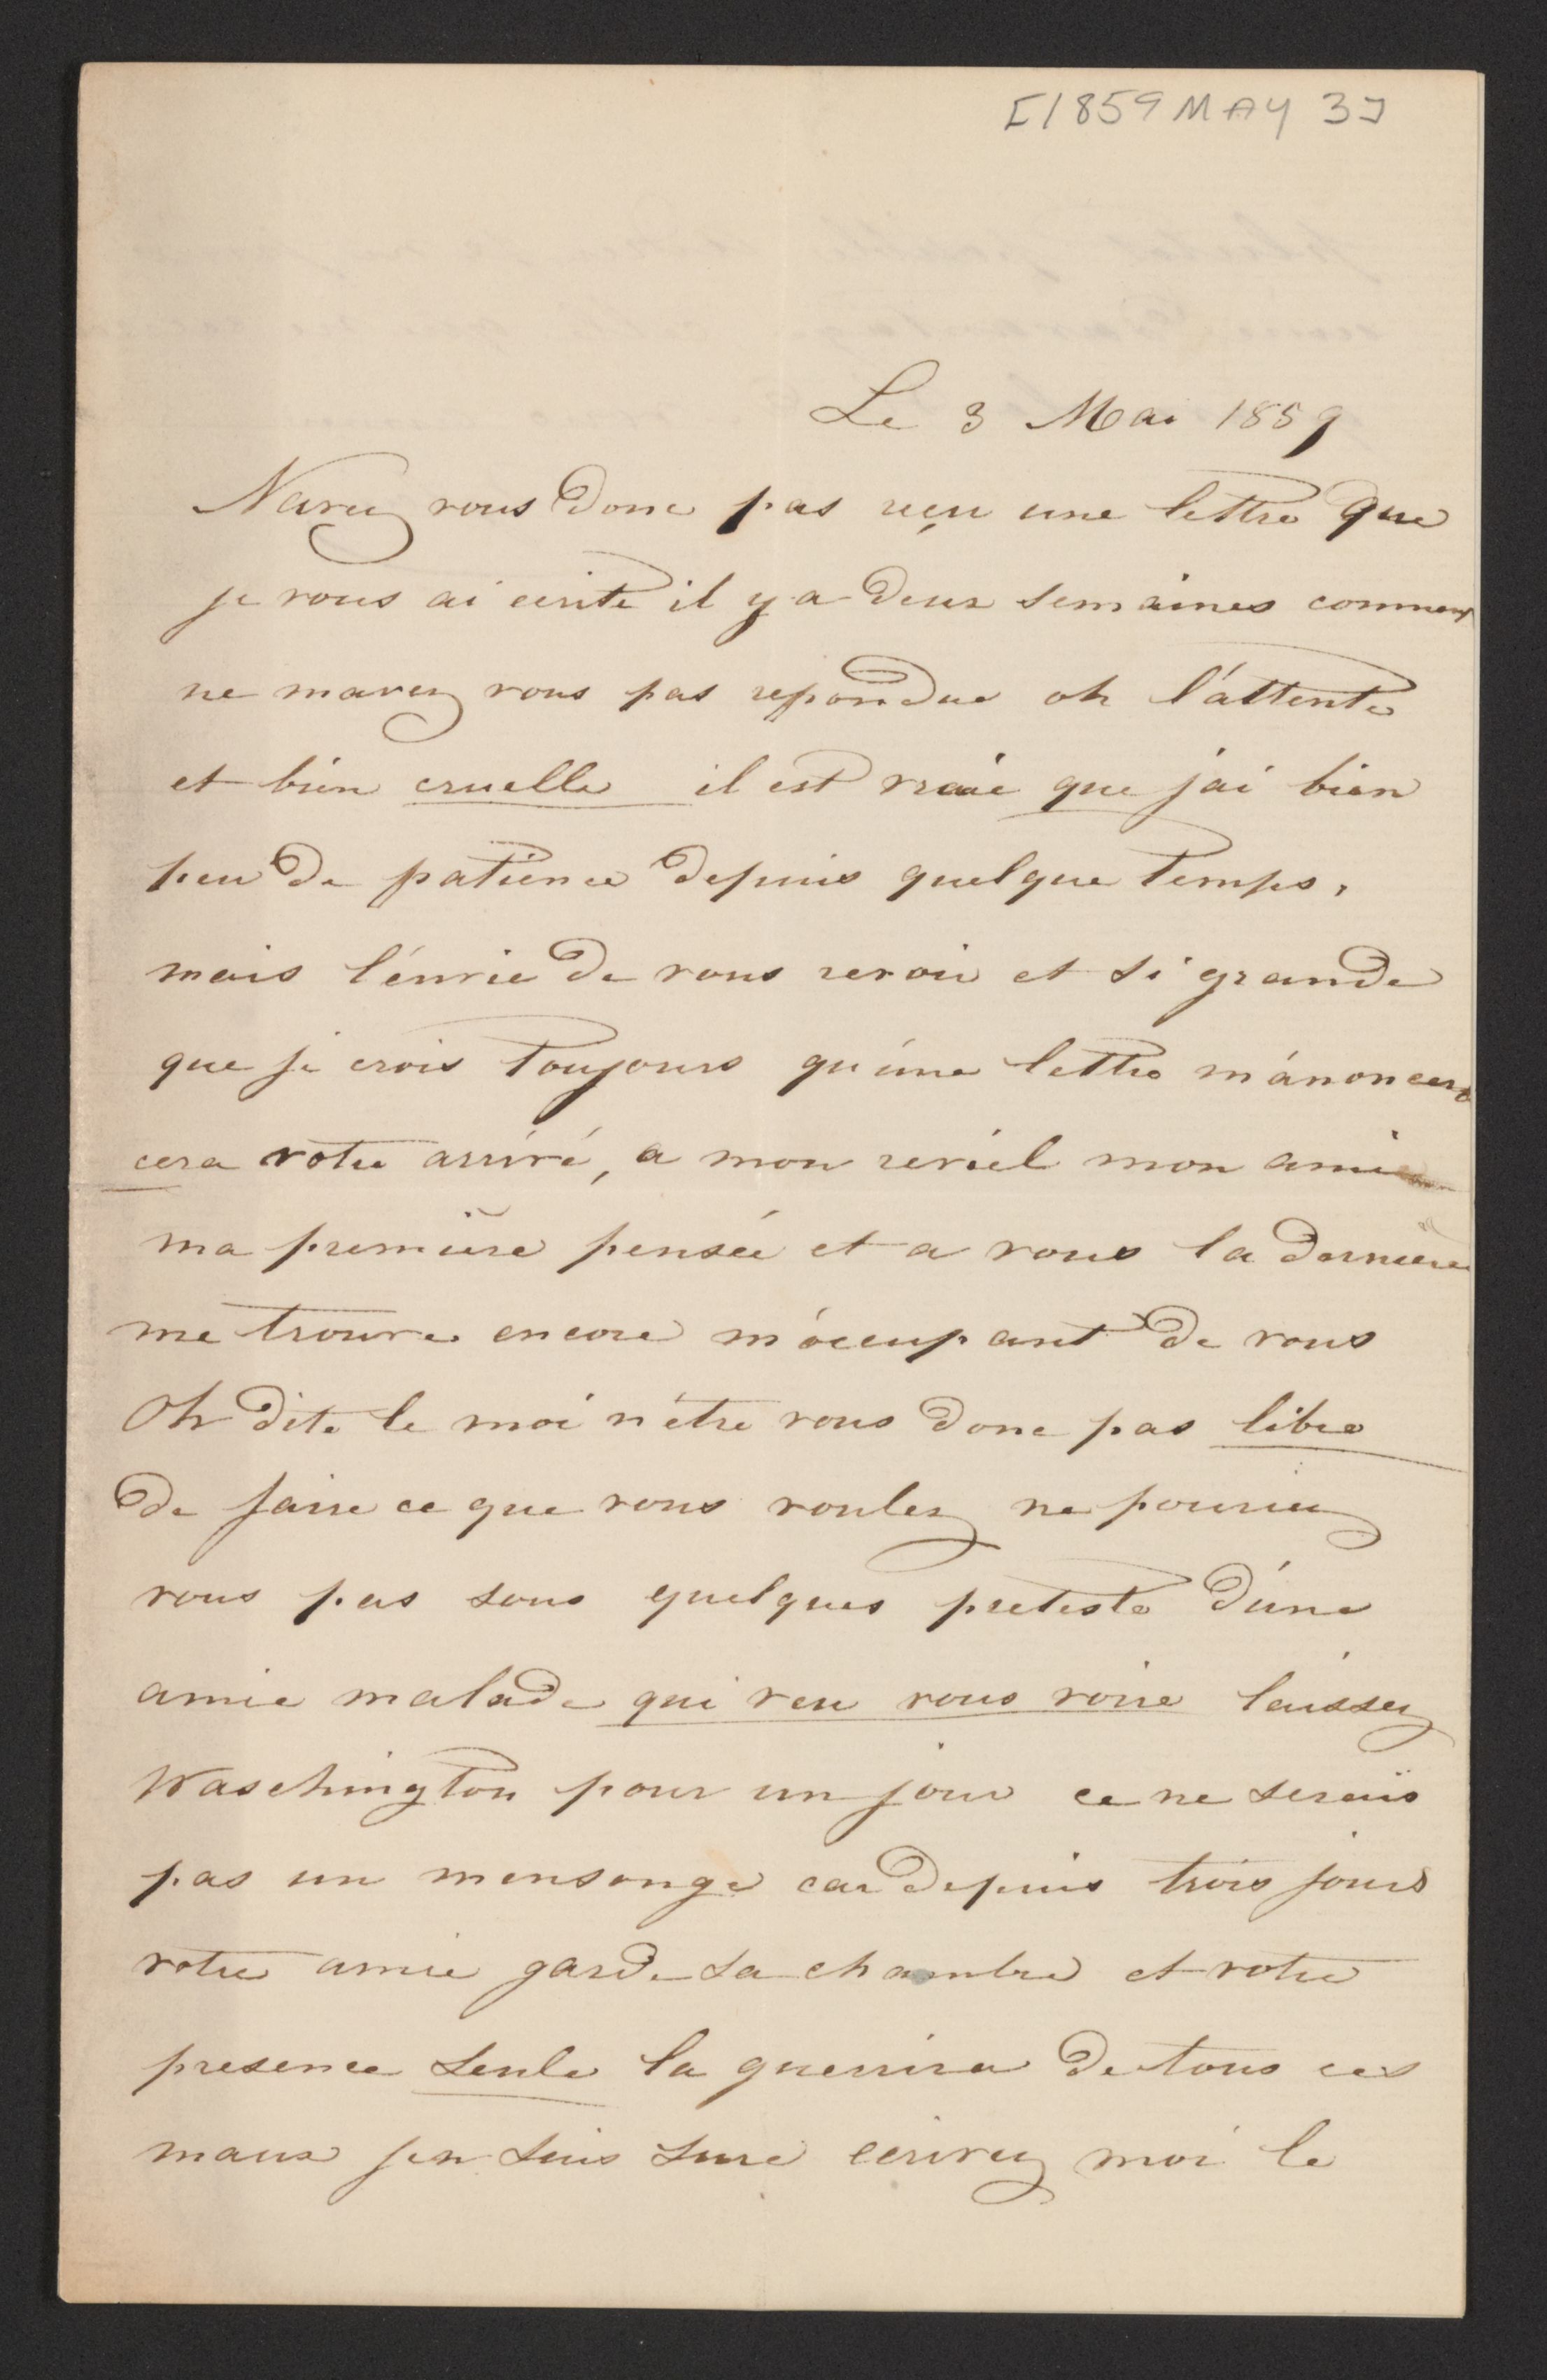 [1859 MAY 3]
Le 3 Mai 1859
Navez vous donc pas reçu une lettre que
je vous ai ecrite il y a deux semaines comment
ne mavez vous pas repondue oh l'attente
et bien cruelle il est vraie que j'ai bien
peu de patience depuis quelque temps,
mais l'envie de vous revoir et si grande
que je crois toujours qu'une lettre m'ánoncera
cera votre arrivé, a mon reviel mon ami
ma première pensée et a vous la dernière
me trouve encore m'occupant de vous
Oh dite le moi n'étre vous donc pas libre
de faire ce que vous voulez ne pouriez
vous pas sous quelques preteste d'une
amie malade qui veu vous voire laissez
Waschington pour un jour ce ne serais
pas un mensonge car depuis trois jours
votre amie garde sa chambre et votre
presence seule la guerrira de tous ces
maux jen suis sure ecrivez moi le